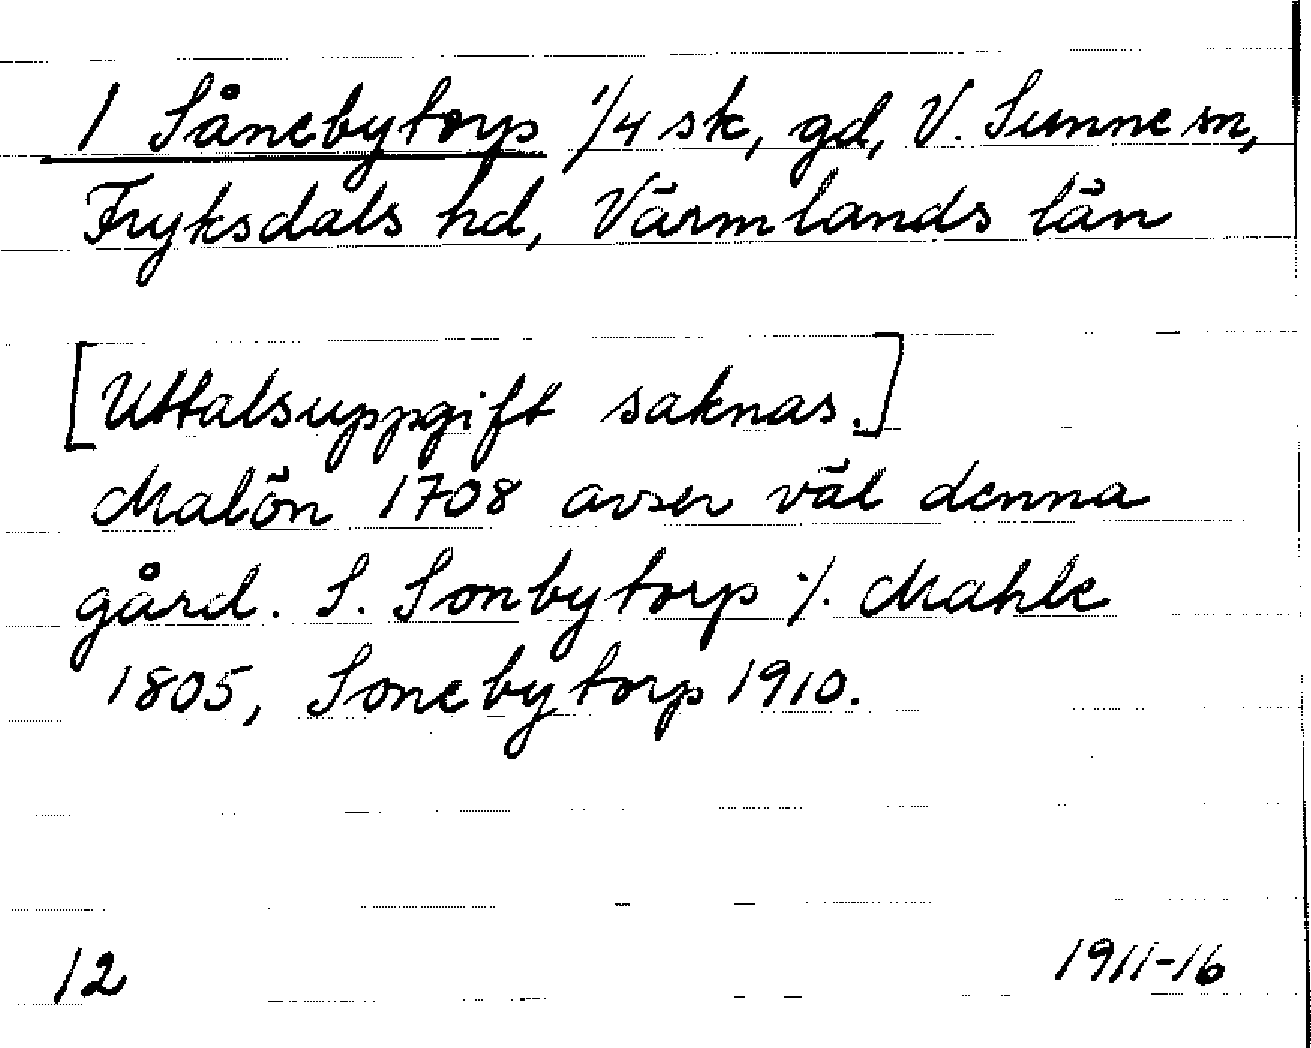 1 Sånebytorp 1/4 sk, gd, V. Sunne sn,
Fryksdals hd, Värmlands län
[Uttalsuppgift saknas.]
Malön 1708 avser väl denna
gård. S. Sonbytorp ·/. Mahle
1805, Sonebytorp 1910.
12
1911-16